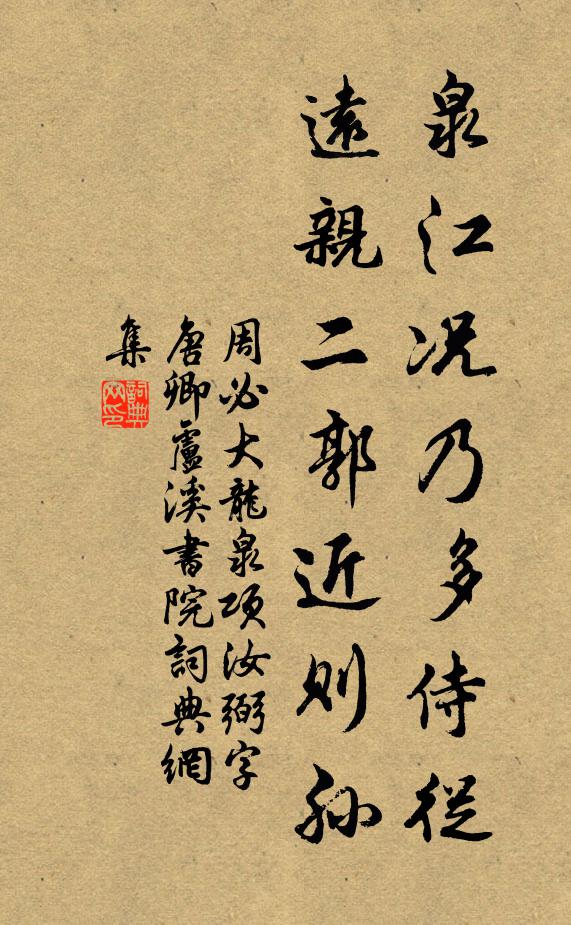 泉江况乃多侍從
遠親二郭近則孫
周必大龍泉項汝弼字
唐卿盧溪書院詞典網
集
詞典
网印